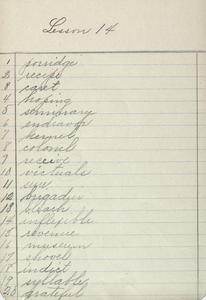 Lesson 14
1 porridge
2 recipe
3 caret
4 hoping
5 seminary
6 endeavor
7 kernel
8 colonel
9 receive
10 victuals
11
12
13 bleach
14
15 revenue
16 museum
17 shovel
18 indict
19 syllable
20 grateful